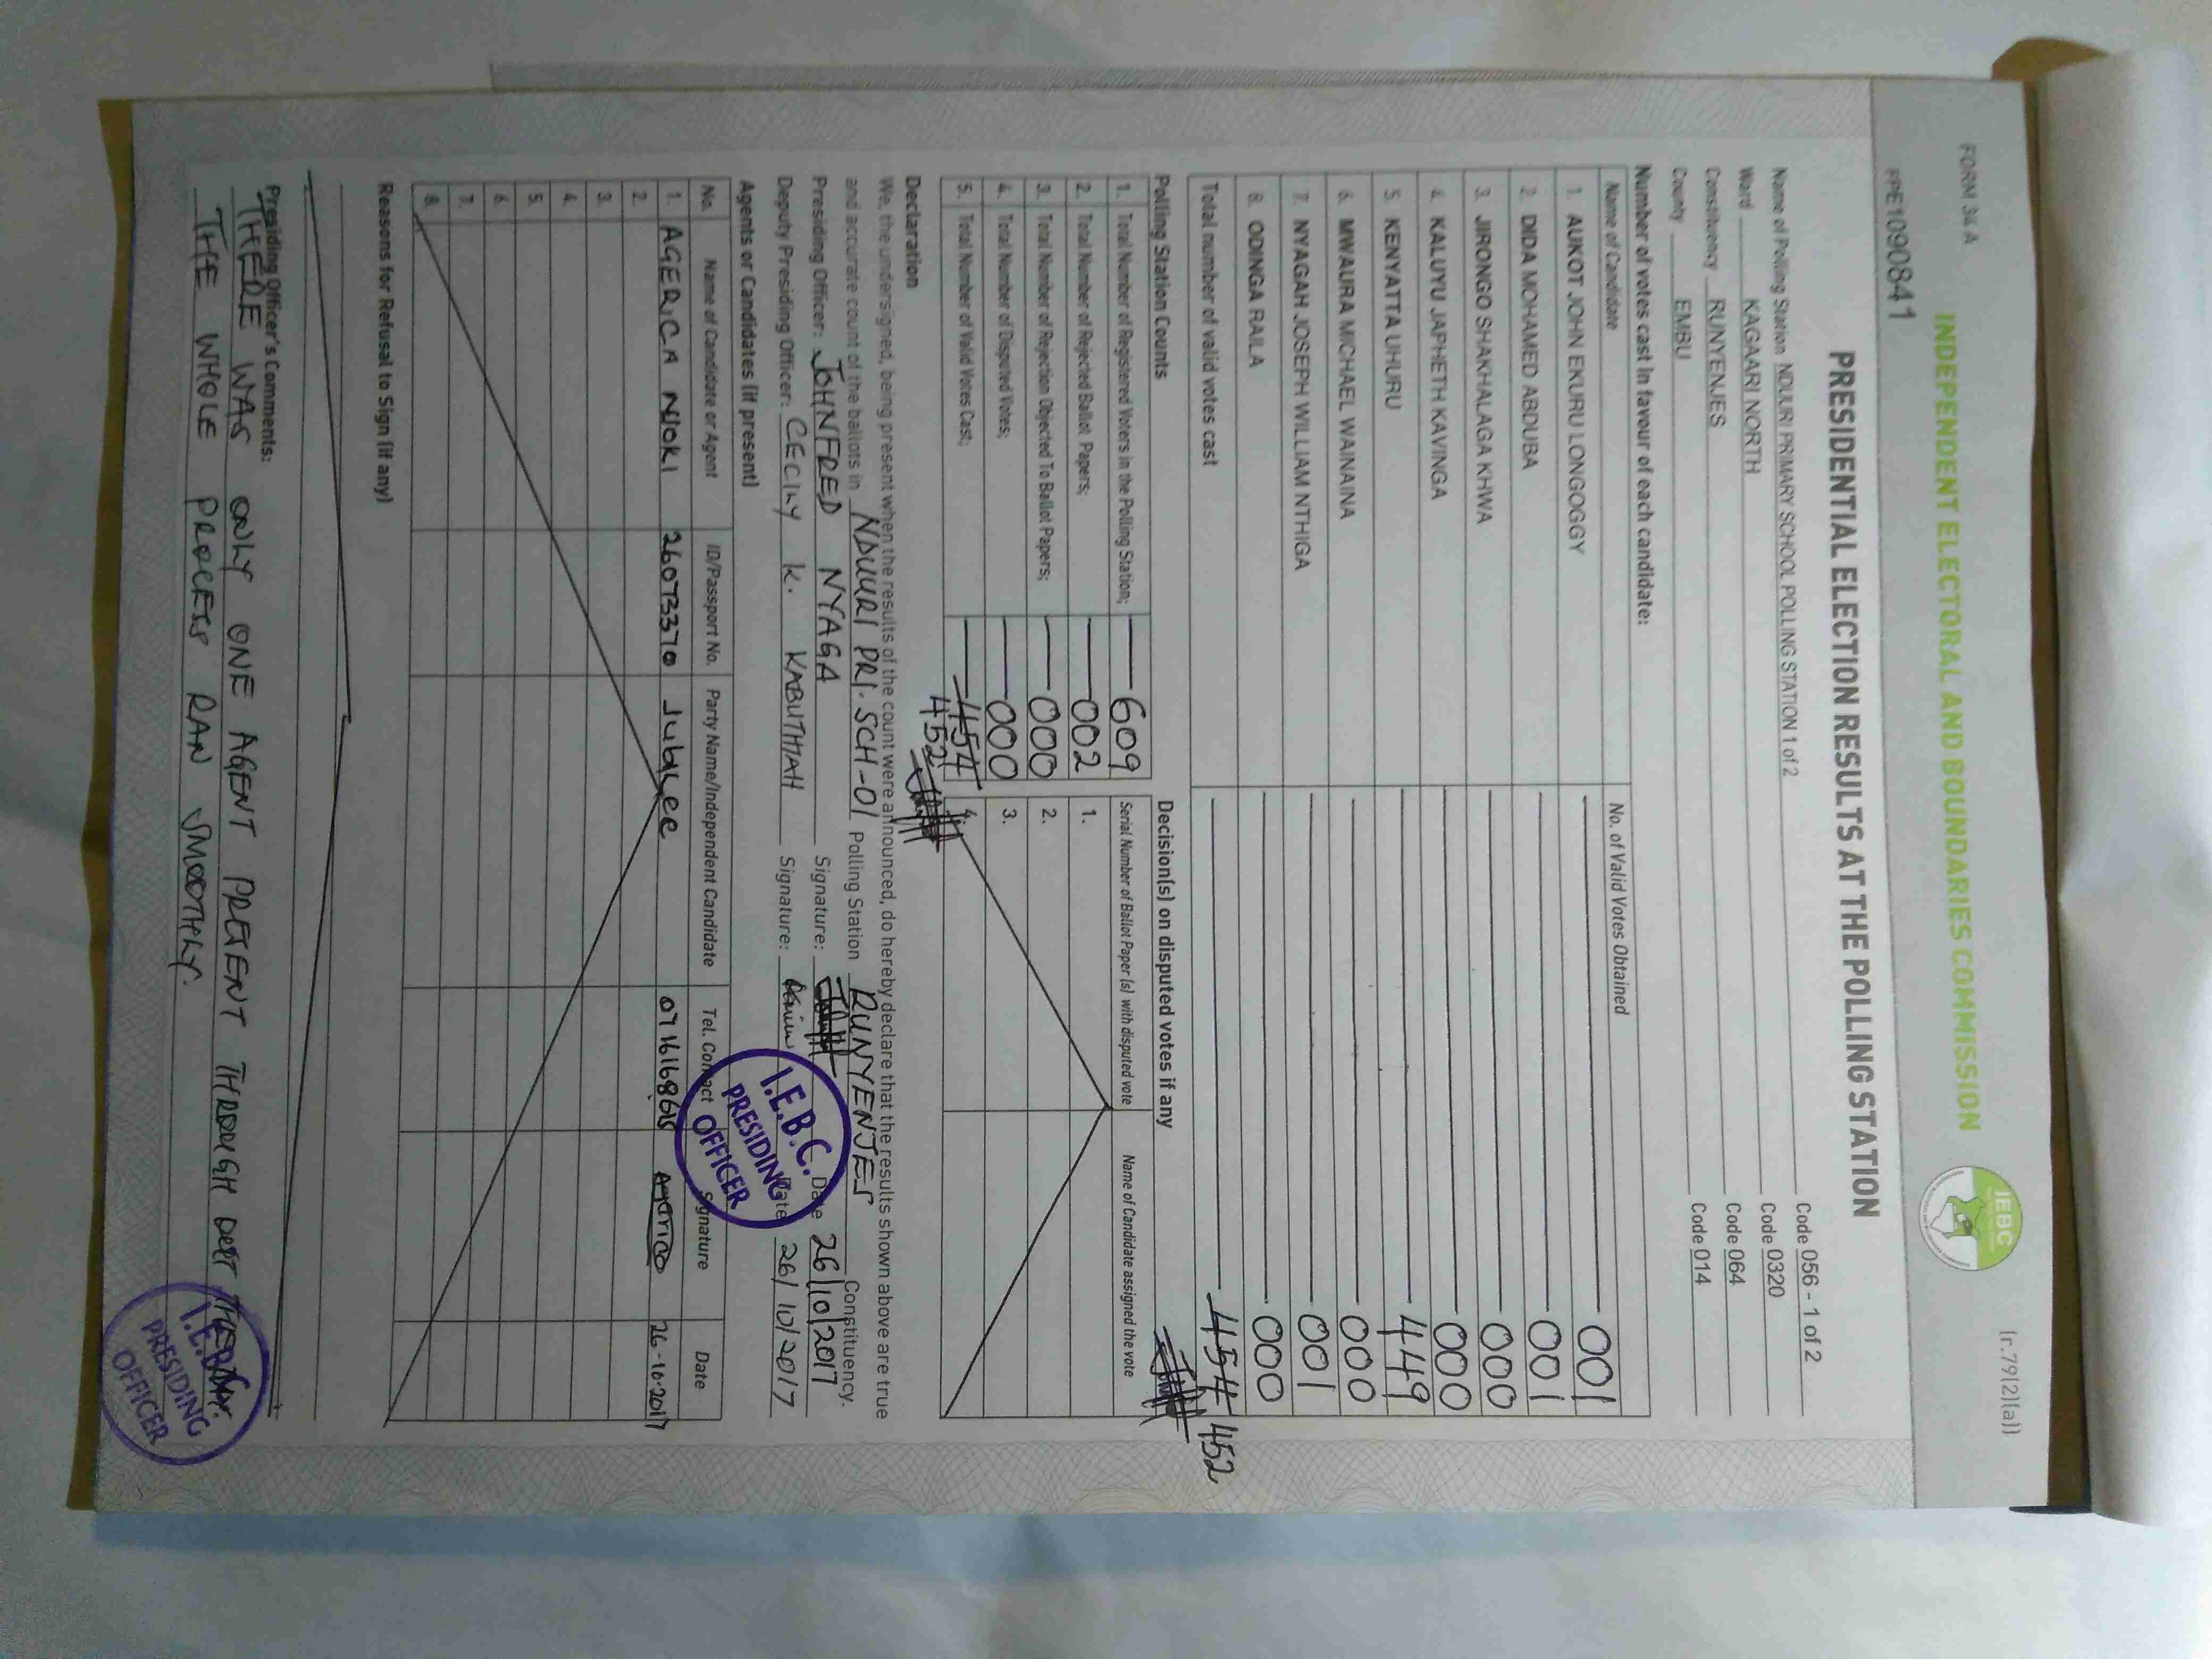 FORM 34 A
(r.79(2)(a))
INDEPENDENT ELECTORAL AND BOUNDARIES COMMISSION
IEBC
FPE1090841
PRESIDENTIAL ELECTION RESULTS AT THE POLLING STATION
Name of Polling Station NDUURI PRIMARY SCHOOL POLLING STATION 1 of 2 Code 056 - 1 of 2
Ward KAGAARI NORTH Code 0320
Constituency RUNYENJES Code 064
County EMBU Code 014
Number of votes cast in favour of each candidate:
Name of Candidate No. of Valid Votes Obtained
1. AUKOT JOHN EKURU LONGOGGY 001
2. DIDA MOHAMED ABDUBA 001
3. JIRONGO SHAKHALAGA KHWA 000
4. KALUYU JAPHETH KAVINGA 000
5. KENYATTA UHURU 449
6. MWAURA MICHAEL WAINAINA 000
7. NYAGAH JOSEPH WILLIAM NTHIGA 001
8. ODINGA RAILA 000
Total number of valid votes cast 454 452
Polling Station Counts Decision(s) on disputed votes if any
Serial Number of Ballot Paper (s) with disputed vote Name of Candidate assigned the vote
1. Total Number of Registered Voters in the Polling Station; 609
2. Total Number of Rejected Ballot Papers; 002 1.
3. Total Number of Rejection Objected To Ballot Papers; 000 2.
4. Total Number of Disputed Votes; 000 3.
5. Total Number of Valid Votes Cast; 454 4.
452
Declaration
We, the undersigned, being present when the results of the count were announced, do hereby declare that the results shown above are true
and accurate count of the ballots in NDUURI PRI. SCH-01 Polling Station RUNYENJES Constituency.
Presiding Officer: JOHNFRED NYAGA Signature: Date 26/10/2017
Deputy Presiding Officer: CECILY K. KABUTHIAH Signature: Date 26/10/2017
I.E.B.C. PRESIDING OFFICER
Agents or Candidates (if present)
No. Name of Candidate or Agent ID/Passport No. Party Name/Independent Candidate Tel. Contact Signature Date
1. AGERICA NJOKI 26073370 JUBILEE 26-10-2017
2.
3.
4.
5.
6.
7.
8.
Reasons for Refusal to Sign (if any)
Presiding Officer's Comments:
THERE WAS ONLY ONE AGENT PRESENT THROUGH OUT THE DAY.
THE WHOLE PROCESS RAN SMOOTHLY.
I.E.B.C. PRESIDING OFFICER